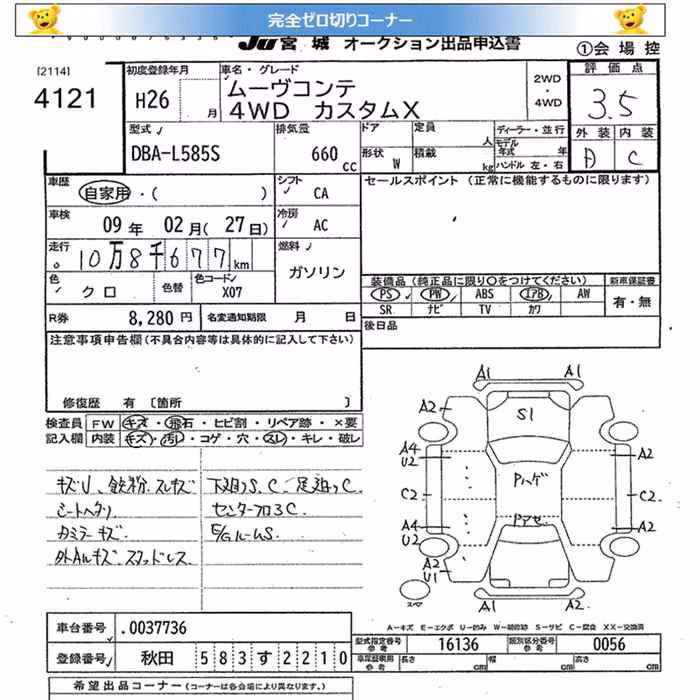 完全ゼロ切りコーナー
JU 宮城 オークション出品申込書 ①会場控
[2114]
4121
初度登録年月
H26 月
車名・グレード
ムーヴコンテ
4WD カスタムX
2WD
・
4WD
評価点
3.5
外装 内装
A C
型式
DBA-L585S
排気量
660 cc
ドア 定員 人
形状 W 積載 kg
ディーラー・並行
モデル年式 年
ハンドル 左・右
車歴
自家用・( )
シフト
CA
セールスポイント (正常に機能するものに限ります)
車検
09年 02月(27日)
冷房
AC
走行
10万8千677km
燃料
ガソリン
色
クロ
色替
色コードNo
X07
装備品(純正品に限り○をつけてください)
PS PW ABS エアB AW
SR ナビ TV カワ
新車保証書
有・無
R券 8,280円 名変通知期限 月 日
後日品
注意事項申告欄(不具合内容等は具体的に記入して下さい)
修復歴 有 〔箇所 〕
検査員 FW キズ・飛石・ヒビ割・リペア跡・×要
記入欄 内装 キズ・汚レ・コゲ・穴・スレ・キレ・破レ
キズU、鉄粉、スレキズ
シートヘタリ
カミラーキズ
外Alキズ スタッドレス
下廻りS、C 足廻りC
センターフロアC
E/GルームS
A1 A1
A2
S1
A4
U2
A2
Pハゲ
C2 C2
Pアセ
A4
U2
A2
A2
U1
スペア
A1 A2
A-キズ E-エクボ U-凹み W-補修跡 S-サビ C-腐食 XX-交換済
車台番号 .0037736
登録番号 秋田 583す2210
型式指定番号 参考 16136 類別区分番号 参考 0056
車庫証明用 参考 長さ cm 幅 cm 高さ cm
希望出品コーナー(コーナーは各会場により異なります。)